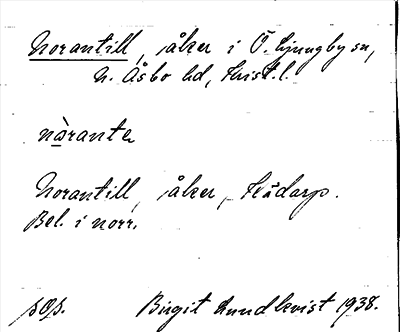 Norantill, åker i Ö. Ljungby sn,
N. Åsbo hd, Krist. l.
nòrante
Norantill, åker, Skådarp.
Bel. i norr.
sOp. Birgit Lundkvist 1938.